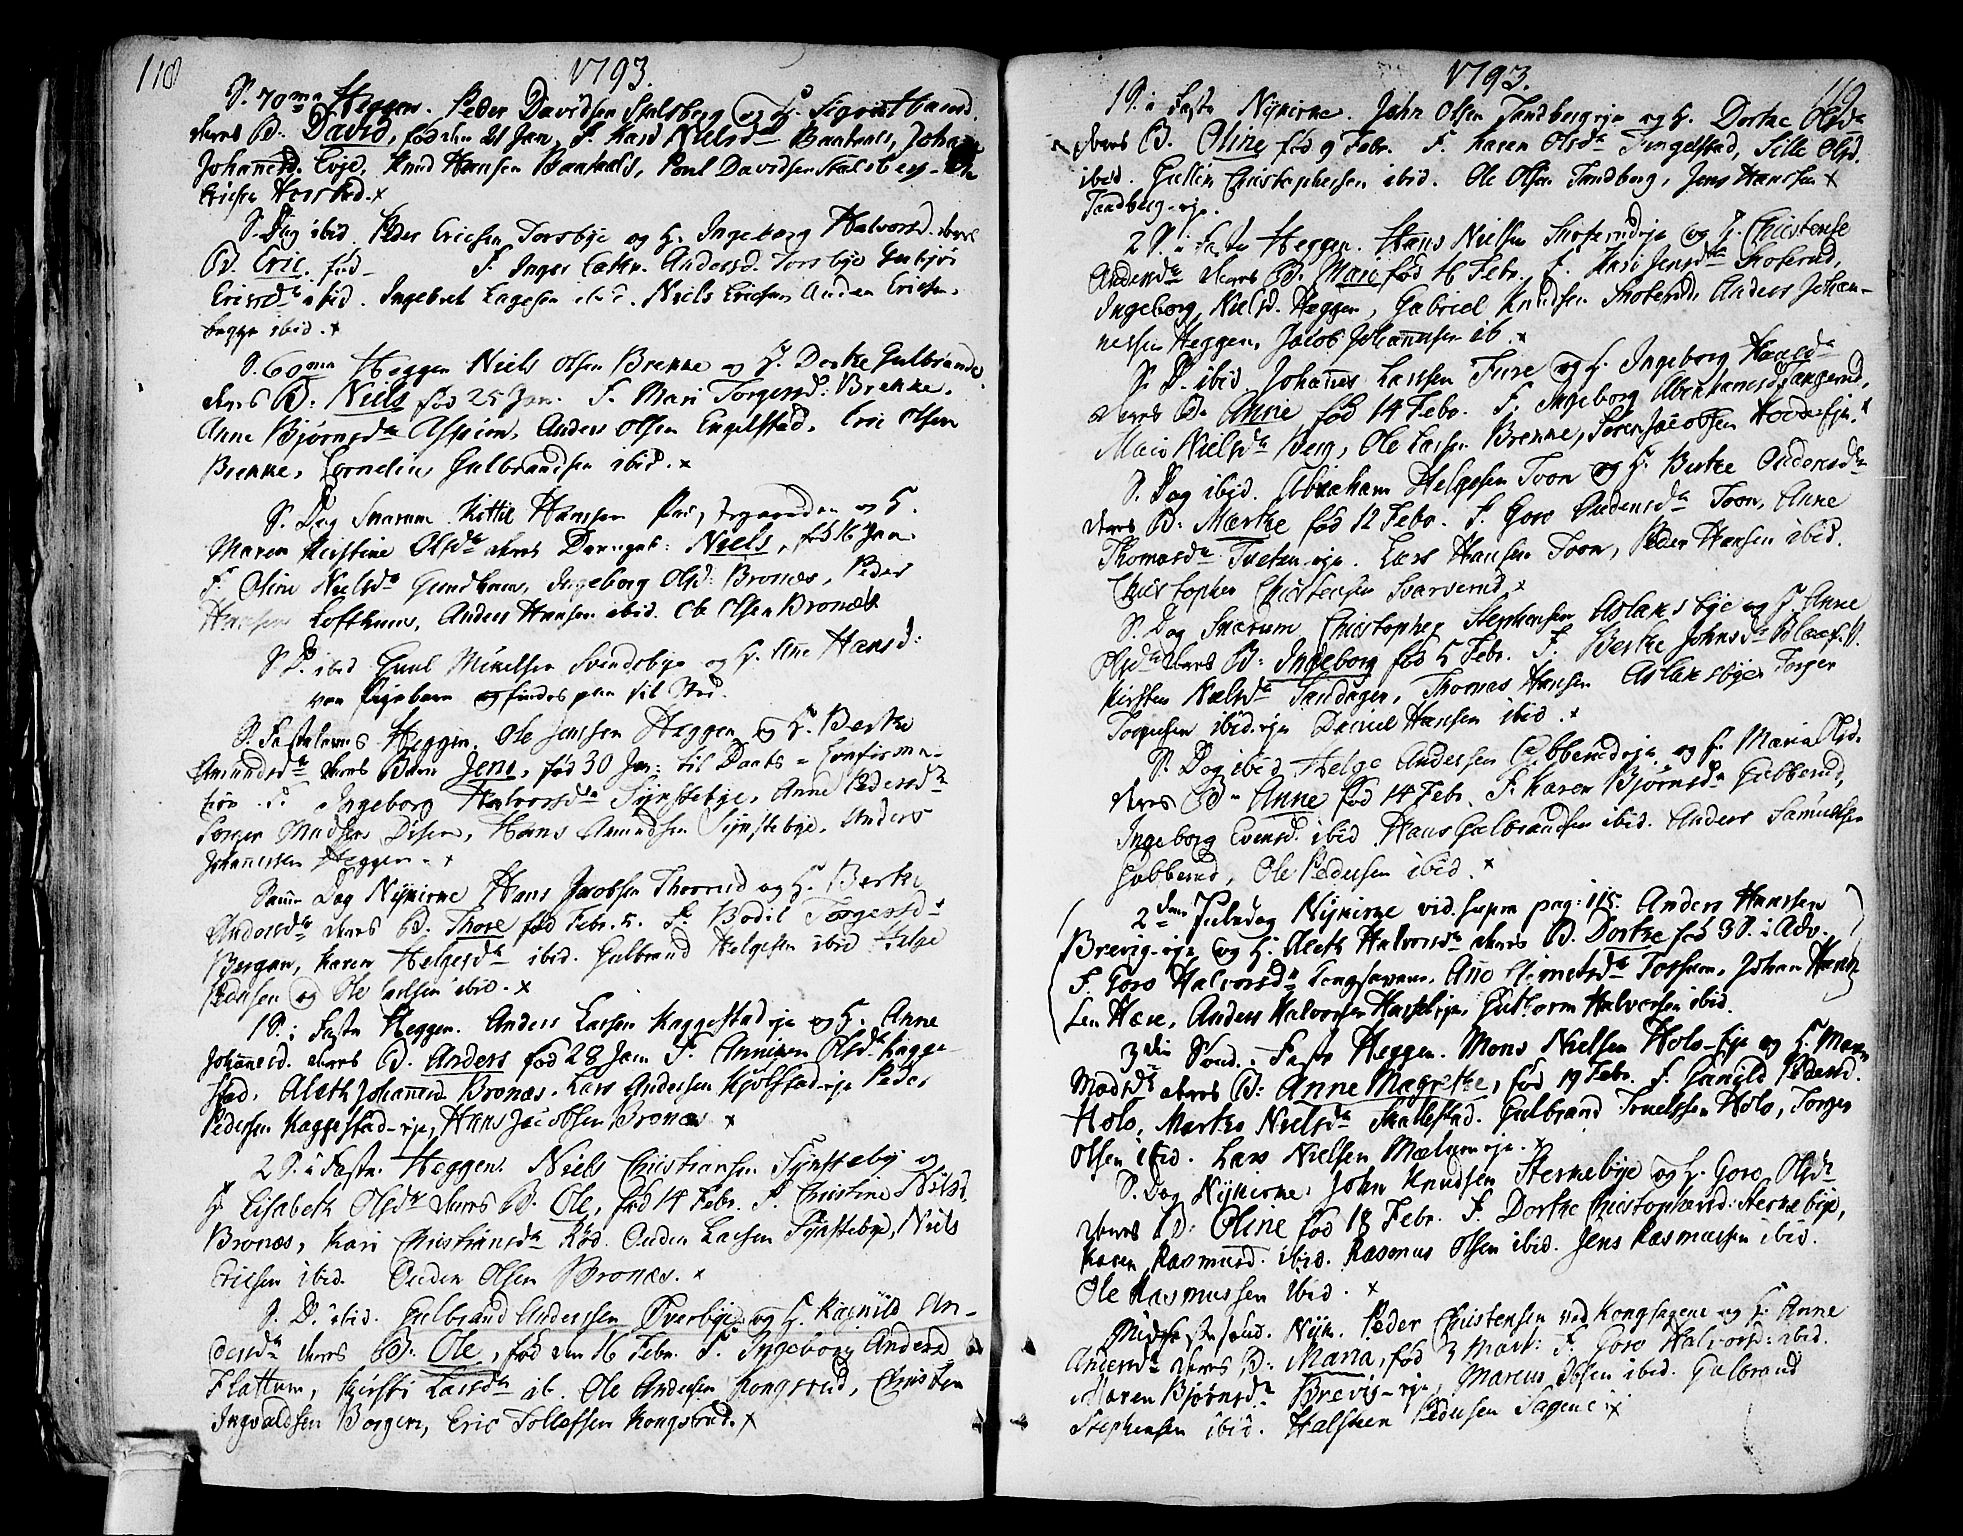 118
1793.
S. 70ma Heggen. Peder Davidsen Stalsberg og H. Sigrid Hansd.
deres B: David, fød den 21 Jan, F. Kari Nielsda
Johannesd. Evje, Knud Hansen, Poul Davidsen Stalsberg
Ericsen
S. Dag ibid Peder Ericsen Torsbye og H. Ingeborg Halvorsd. deres
B. Eric fød F. Inger Cathr. Andersd. Torsbye
Ericsda ibid. Ingebret Lagesen ibid. Niels Ericsen Auden Ericsen
begge ibid. x
S. 60ma Heggen Niels Olsen Brekke og H. Dorthe Gulbrands
deres B: Niels fød 25 Jan. F. Mari Torgersd: Brekke.
Anne Bjørnsda Aspien, Anders Olsen Engelstad, Eric Olsen
Brekke, Cornelius Gulbrandsen ibid. x
S. Dag Snarum Kittil Hanssen og H.
Maren Kirstine Olsda deres: Niels, fød 16 Jan.
F. Oline Nielsda Gundhuus, Ingeborg Olsd: Bronæs, Peder
Hansen Lofthuus, Anders Hansen ibid. Ole Olsen Bronæs
S. D. ibid Guul Mikelsen Svendsbye og H. Ane Hansd:
S. Fastelavns Heggen, Ole Jenssen Heggen og H. Berthe
Amundsda deres Barn Jens, fød 30 Jan: til Daabs Confirma-
tion. F. Ingeborg Halvorsda Synstebye, Anne Pedersda
Torger Madsen Disen, Hans Amundsen Synstebye. Anders
Johannesen Heggen. x
Samme Dag Nykirke Hans Jacobsen Thorrud og H. Berthe
Andersda deres B: Thore fød Febr. 5. F. Bodil Torgersda
Bergan, Karen Helgesda ibid. Gulbrand Helgesen ibid Helge
Pedersen og Ole Carlsen ibid. x
1 S. i Faste Heggen. Anders Larsen Kaggestad eje og H. Anne
Johannesd. deres B. Anders fød 28 Jan F. Anniken Olsda Kagge-
stad, Aleth Johannesd Bronæs. Lars Andersen Kjølstad eje Peder
Pedersen Kaggestad-eje, Hans Jacobsen Bronæs x
2 S. i Faste. Heggen. Niels Christiansen Synsteby og
H. Lisabeth Olsda deres B. Ole, fød 14 Febr. F. Christine Nilsd.
Bronæs, Kari Christiansda Rød. Auden Larsen Synstebye, Niels
Ericsen ibid. Auden Olsen Bronæs. x
S. D. ibid. Gulbrand Anderssen Øverbye og H. Ragnild An-
dersda deres B: Ole, fød den 16 Febr. F. Ingeborg Andersd
Flattum, Kirsti Larsda ib. Ole Andersen Kongsrud, Christen
Ingvaldsen Borgen, Eric Tollefsen Kongsrud. x
119
1793.
1 S. i Faste Nykirke. John Olsen Tandberg eje og H. Dorthe Olsda
deres B. Oline fød 9 Febr. F. Karen Olsda Tingelstad, Sille Olsd.
ibid. Gulbr Christophersen ibid. Ole Olsen Tandberg, Jens Hanssen x
Tandberg-eje.
2 S. i Faste Heggen. Hans Nielsen Skoterud eje og H. Christense
Andersda deres B. Mari fød 16 Febr. F. Kari Jensda Skoterud,
Ingeborg Nielsd. Heggen, Gabriel Knudsen Skoterud, Anders Johan-
nessen Heggen, Jacob Johannesen ib. x
S. D. ibid. Johannes Larssen Fure og H. Ingeborg Haralda
deres B. Anne fød 14 Febr. F. Ingeborg Abrahamsd
Mari Nielsda Berg, Ole Larsen Brekke, Søren Jacobsen Hovde eje. x
S. Dag ibid. Abraham Helgesen Toon og H. Berthe Andersda
deres B: Marthe fød 12 Febr. F. Goro Andersda Toon, Anne
Thomasda Tveten eje. Lars Hansen Toon, Peder Hansen ibid.
Christopher Christensen Svarverud x
S. Dag Snarum Christopher Stephensen Aslaksbye og H. Anne
Olsda deres B: Ingeborg fød 5 Febr. F. Berthe Johnsda
Kirsten Nielsda Sandagen, Thomas Hansen Aslaksbye Torger
Torgersen ibid. eje Daniel Hansen ibid. x
S. Dag ibid Helge Andersen Gubberud eje og H. Maria Olsd.
deres B. Anne fød 14 Febr. F. Karen Bjørnsda Gubberud,
Ingeborg Evensd: ibid Hans Gulbrandsen ibid. Anders Samuelsen
Gubberud, Ole Pedersen ibid. x
(2den Juledag Nykirke vid. supra pag: 115: Anders Hanssen
Brevig-eje og H. Aleth Halvorsda deres B. Dorthe fød 3 S. i Adv.
F. Goro Halvorsda Kongsagene, Ane Torsrum, Johan Han-
sen Hære, Anders Halvorsen Hassel eje, Guttorm Halvorsen ibid.)
3die Sønd. i Faste Heggen. Mons Nielsen Holo-eje og H. Maren
Madsda deres B: Anne Magrethe, fød 19 Febr. F. Gunild Pedersd.
Holo, Marthe Nielsda Skallestad. Gulbrand Truelssen Holo, Torger
Olsen ibid. Lars Nielsen Mælum eje. x
S. Dag Nykirke: John Knudsen Sternebye og H. Goro Olsda
deres B: Oline fød 18 Febr. F. Dorthe Christophersd: Sternebye,
Karen Rasmusd. ibid. Rasmus Olsen ibid. Jens Rasmussen ibid.
Ole Rasmussen ibid. x
Midfaste sønd. Nyk. Peder Christensen ved Kongsagene og H. Anne
Andersda deres B: Maria, fød 3 Mart: F. Goro Halvorsd: ibid.
Maren Bjørnsda Brevig-eje, Marcus Ibsen ibid. Gulbrand
Stephensen ibid. Halsteen Pedersen Sagene x